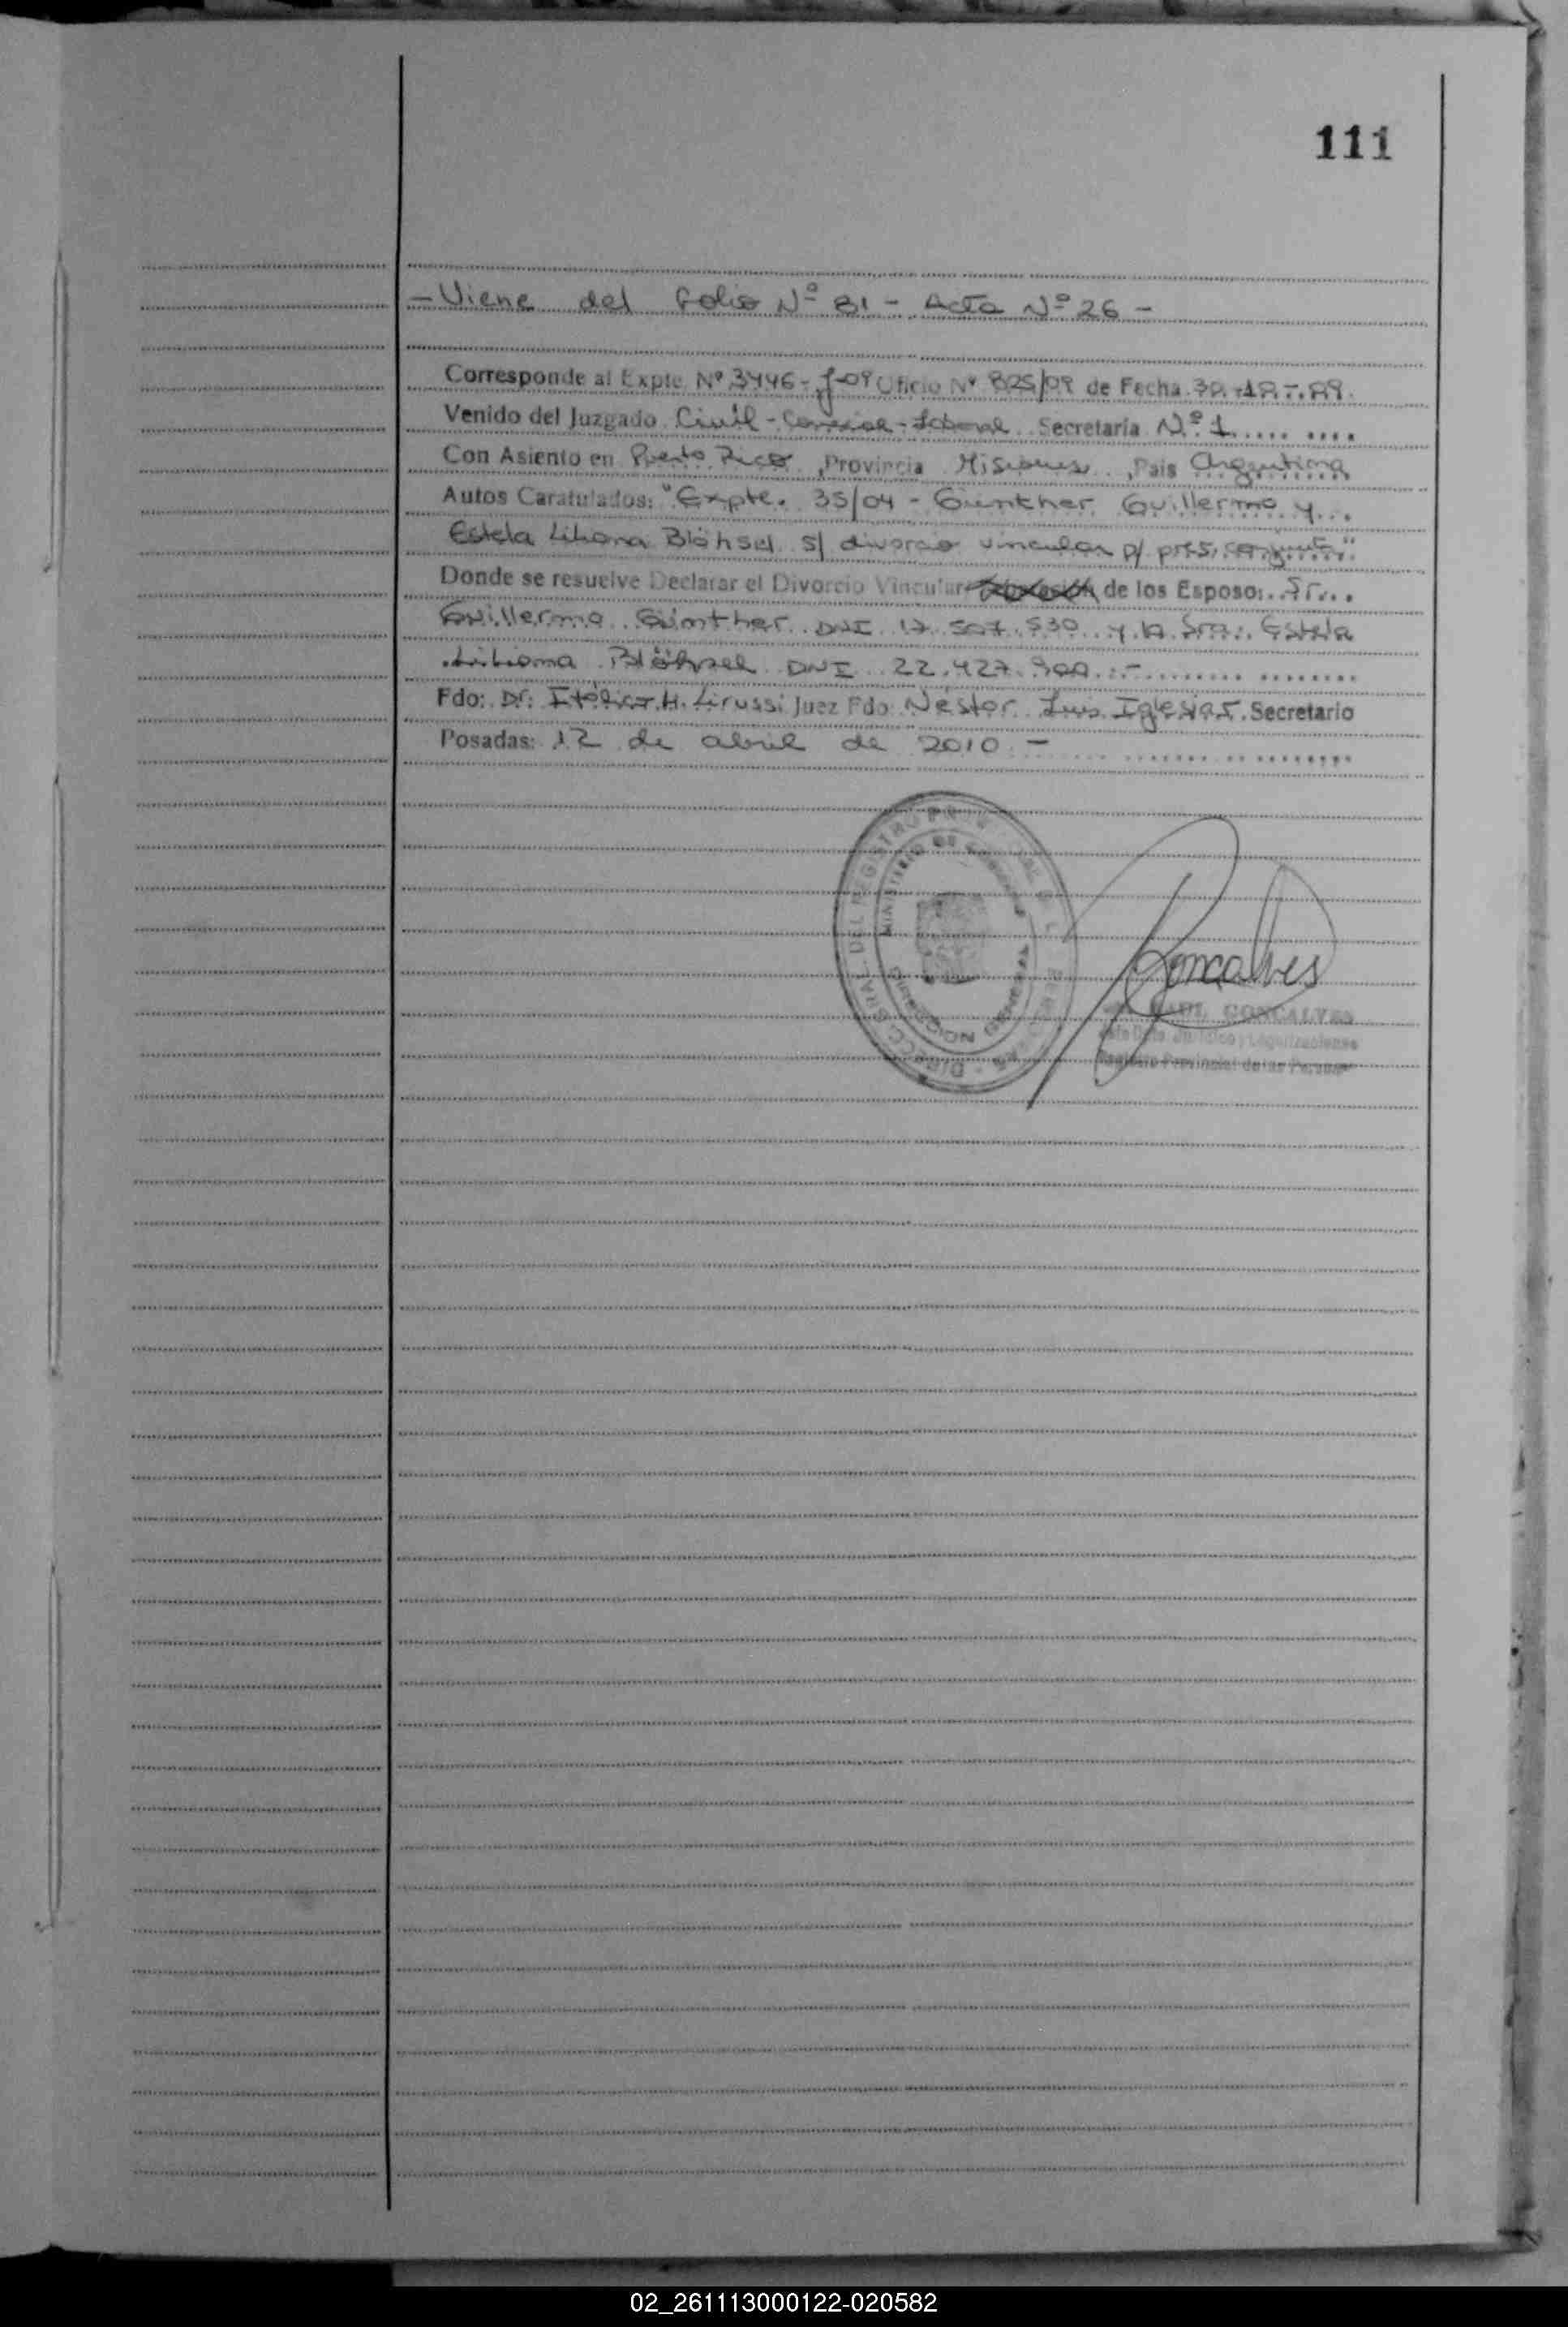 111
- Viene del Folio Nº 81 - Acta Nº 26 -
Corresponde al Expte. Nº 3446-J-09 Oficio Nº 825/09 de Fecha
Venido del Juzgado Civil - Comercial - Laboral Secretaría Nº 1
Con Asiento en Puerto Rico, Provincia Misiones, País Argentina
Autos Caratulados: "Expte. 35/04 - Günther Guillermo y
Estela Liliana Blöhsel s/ divorcio vincular p/ pres. conjunta"
Donde se resuelve Declarar el Divorcio Vincular de los Esposo: Sr.
Guillermo Günther DNI 17.507.530 y la Sra.: Estela
Liliana Blöhsel DNI 22.427.900.-
Fdo: Dr: Itálico H. Lirussi Juez Fdo: Néstor Luis Iglesias Secretario
Posadas: 12 de abril de 2010.-
DIRECC. GRAL. DEL REGISTRO
MINISTERIO DE GOBIERNO
DIRECCION GENERAL
Goncalves
RAUL GONCALVES
Jurídico y Legalizaciones
Registro Provincial de las Personas
02_261113000122-020582